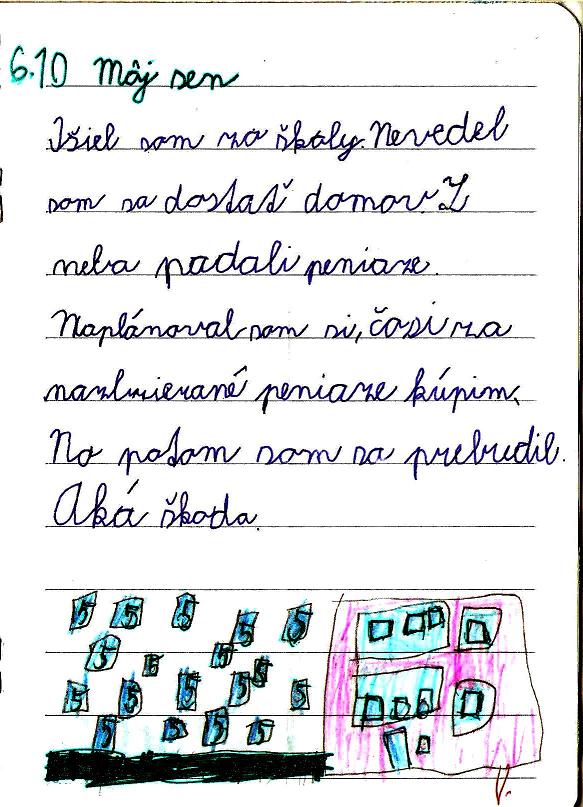 6.10 Môj sen
Išiel som zo školy. Nevedel
som sa dostať domov. Z
neba padali peniaze.
Naplánoval som si, čo si za
nazbierané peniaze kúpim.
No potom som sa prebudil.
Aká škoda.
5 5 5 5 5
5 5 5 5
5 5 5 5 5
5 5 5 5